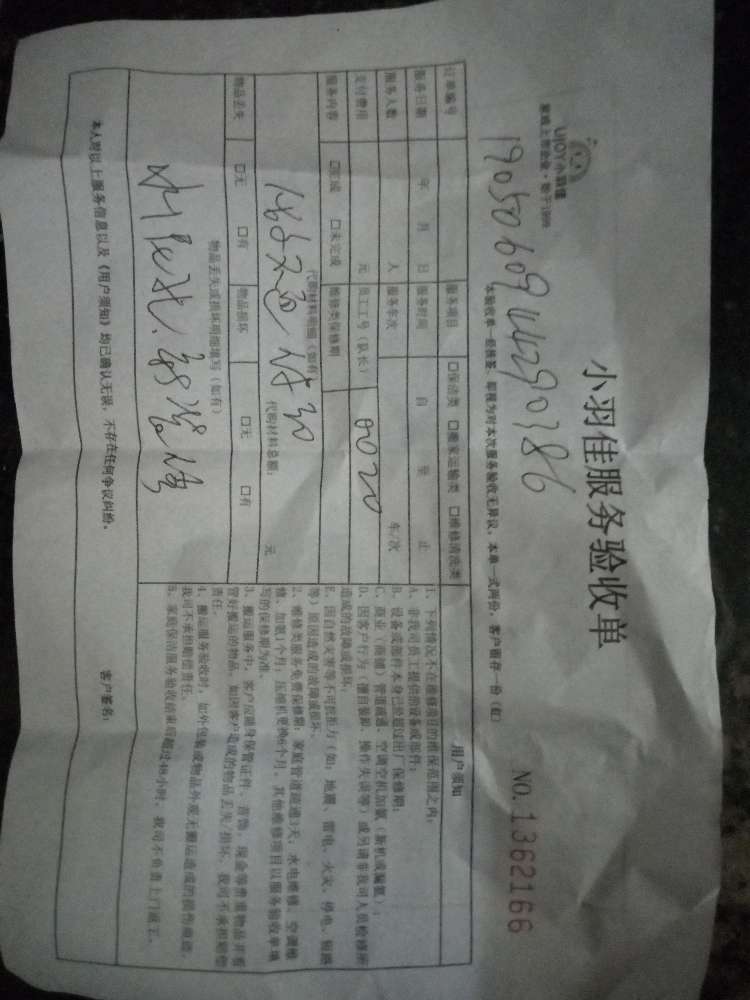 小羽佳服务验收单
UJOY小羽佳
家政上市企业·始于1999
NO.1362166
本验收单一经换签，即视为对本次服务验收无异议，本单一式两份，客户留存一份（红）
订单编号
服务项目 □保洁类 □搬家运输类 □维修清洗类
服务日期 年 月 日 服务时间 自 至 止
服务人数 人 服务年次 年/次
支付费用 元 员工工号（队长） 0020
服务内容 □完成 □未完成 维修类保修期
代购材料明细（如有）
代购材料总额： 元
物品丢失 □无 □有 物品损坏 □无 □有
物品丢失或损坏明细填写（如有）
用户须知
1、下列情况不在维修项目的维保范围之内：
A、非我司员工提供的设备或部件；
B、设备或部件本身已经超过出厂保修期；
C、商业（商铺）管道疏通、空调空机加氨（新机或漏氨）；
D、因客户行为（擅自装卸、操作失误等）或另请非我司人员检修所
造成的故障或损坏；
E、因自然灾害等不可抗拒力（如：地震、雷电、火灾、停电、短路
等）原因造成的故障或损坏。
2、维修类服务免费保修期：家庭管道疏通3天，水电维修、空调维
修、加氨1个月，压缩机更换6个月。其他维修项目以服务验收单填
写的保修期为准。
3、搬运服务中，客户应随身保管证件、首饰、现金等贵重物品并看
管好搬运的物品。如因客户造成的物品丢失/损坏，我司不承担赔偿
责任。
4、搬运服务验收时，如外包装或物品外观无搬运造成的损伤痕迹，
我司不承担赔偿责任。
5、家庭保洁服务验收结束后超过48小时，我司不负责上门返工。
本人对以上服务信息以及《用户须知》均已确认无误，不存在任何争议纠纷。
客户签名：